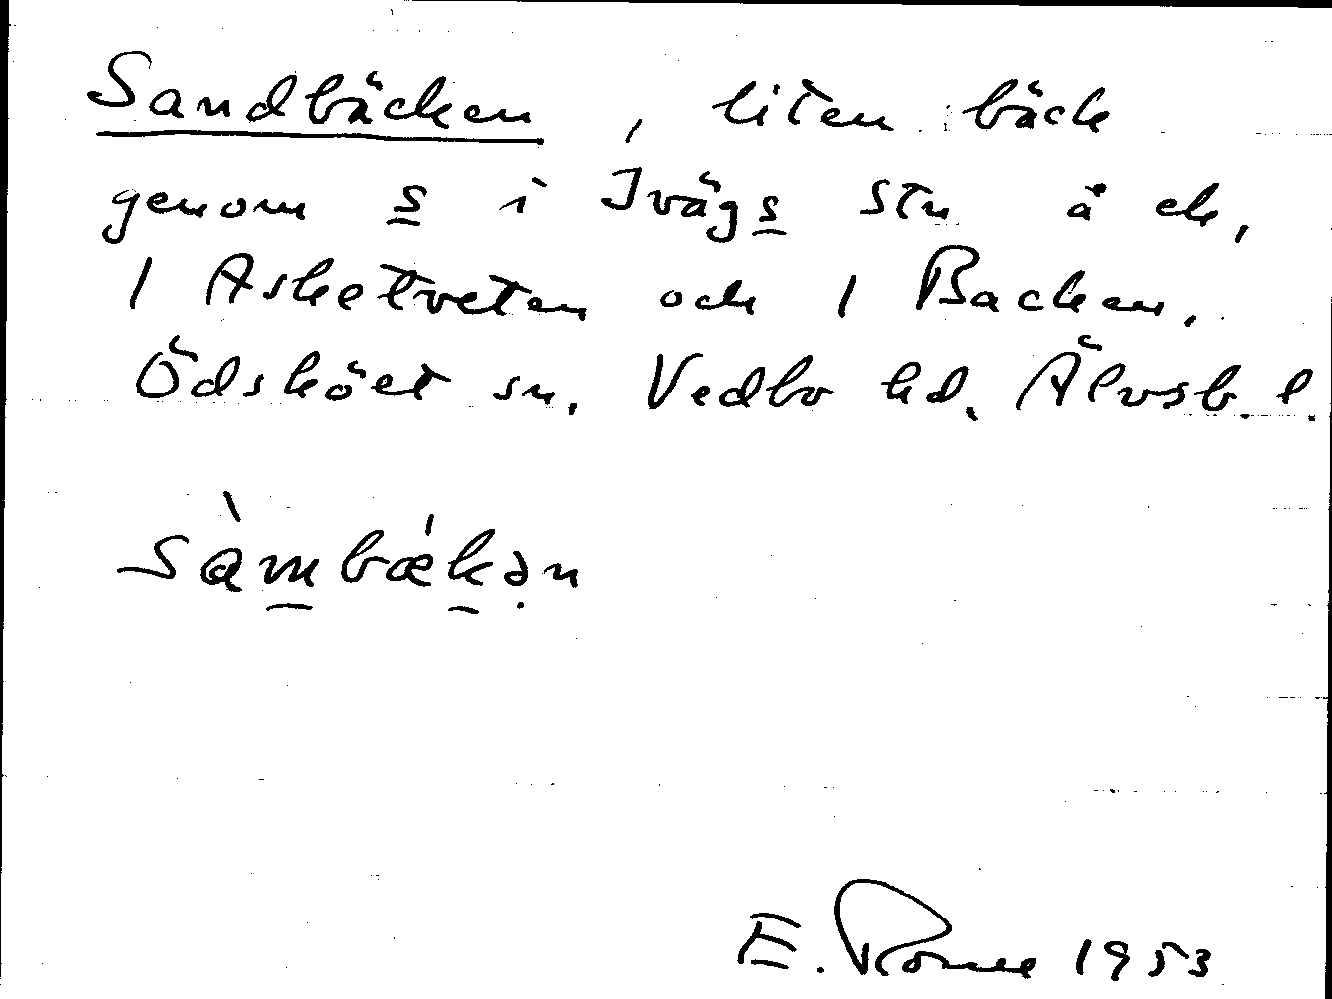 Sandbäcken, liten bäck
genom s i Ivägs stn å ek,
1 Asketveten och 1 Backen,
Ödsköet sn. Vedbo hd. Älvsb. l.
sàmbǽkən
E. 1953